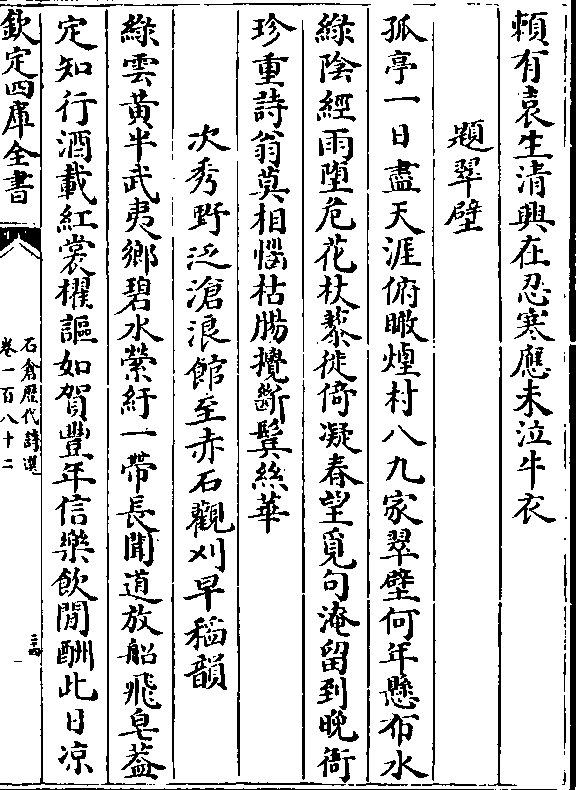 頼有袁生清興在忍寒應未泣牛衣
題翠壁
孤亭一日盡天涯俯瞰煙村八九家翠壁何年懸布水
綠陰經雨墮危花杖藜徙倚凝春望覓句淹留到晚衙
珍重詩翁莫相惱枯腸攪斷鬂絲華
次秀野泛滄浪館至赤石觀刈早稻韻
綠雲黃半武夷鄉碧水縈紆一帶長聞道放船飛皂蓋
定知行酒載紅裳櫂謳如賀豐年信樂飲閒酬此日凉
欽定四庫全書
石倉歷代詩選
卷一百八十二
二十四